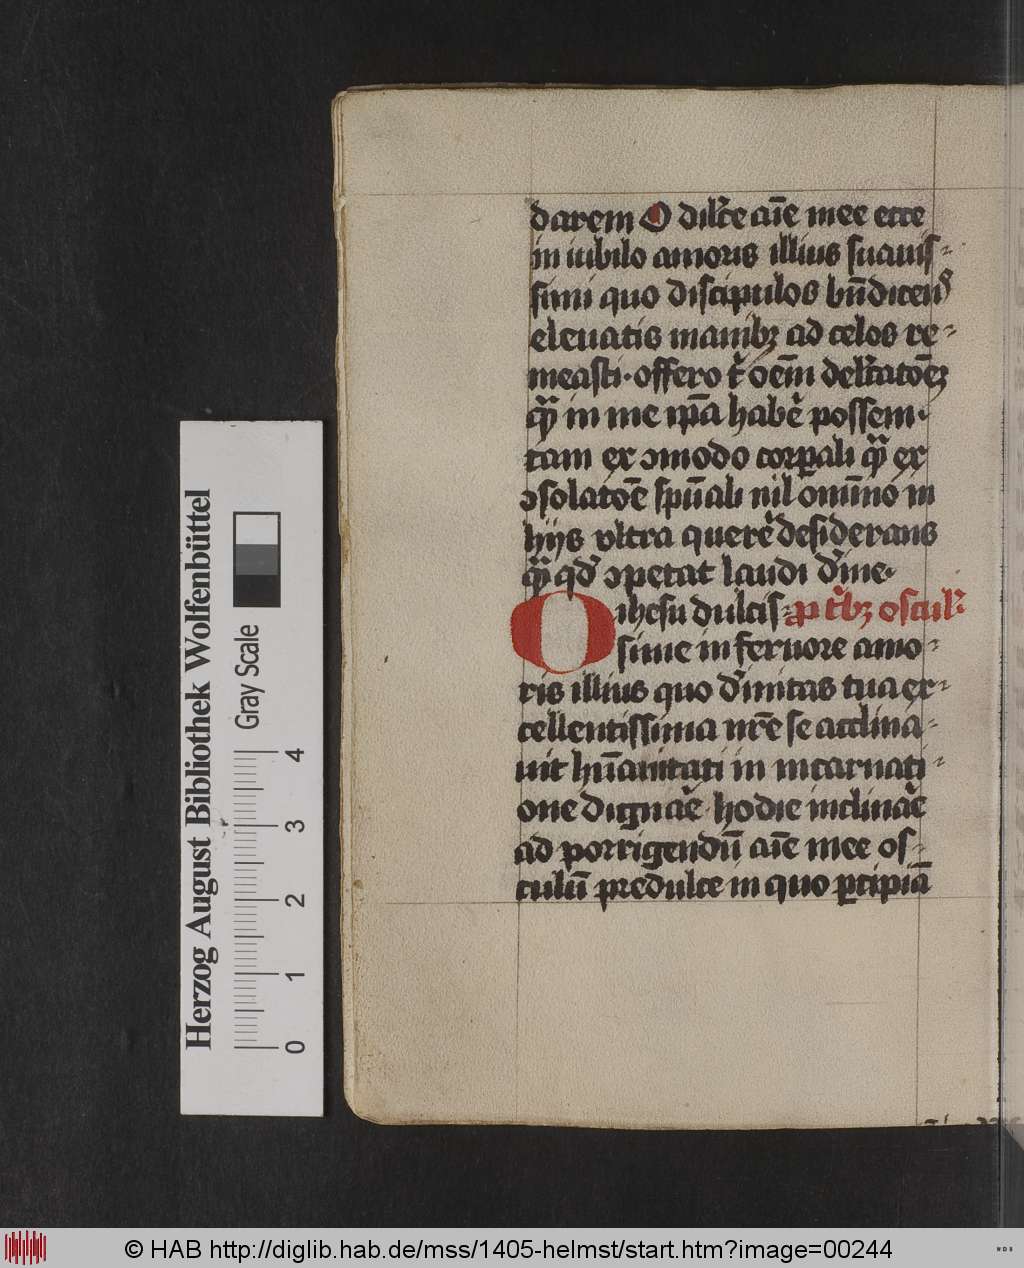 darem O dilc̄te aīe mee ecce
in iubilo amoris illius suauis⸗
simi quo discipulos bn̄dicend
eleuatis manibꝫ ad celos re⸗
measti · offero t̉ oēm delc̄tatōeꝫ
qᷓ in me ip̄a habē possem ·
tam ex ꝯmodo corꝑali qᷓ ex
ꝯsolatōe sp̄uali nil om̄ino in
hijs vltra querē desiderans
qᷓ qd̓ ꝯpetat laudi d̓ine ·
O ihesu dulcis⸗ ꝓ tībꝫ oscul̓
sime in feruore amo⸗
ris illius quo d̓initas tua ex⸗
cellentissima nr̄e se acclina⸗
uit hūanitati in incarnati⸗
one dignaē hodie inclinaē
ad porrigendū aīe mee os⸗
culū predulce in quo ꝑcipiā
Herzog August Bibliothek Wolfenbüttel
Gray Scale
0 1 2 3 4
© HAB http://diglib.hab.de/mss/1405-helmst/start.htm?image=00244